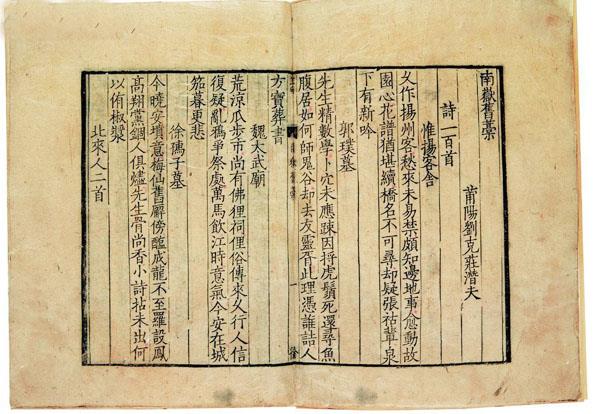 南嶽舊藁
莆陽劉克莊潛夫
詩一百首
惟揚客舍
久作揚州客愁來未易禁頗知邊地事愈動故
園心花譜猶堪續橋名不可尋却疑張祐輩泉
下有新吟
郭璞墓
先生精數學穴未應踈因捋虎鬚死還尋魚
腹居如何師鬼谷却去友靈胥此理憑誰詰人
方寶葬書
魏太武廟
荒涼瓜步市尚有佛狸祠俚俗傳來久行人信
復疑亂鴉爭祭處萬馬飲江時意氣今安在城
笳暮更悲
徐孺子墓
今曉安墳意梅仙舊廨傍醢成龍不至羅設鳳
高翔黨錮人俱燼先生骨尚香小詩拈未出何
以侑椒漿
北來人二首
一
徐